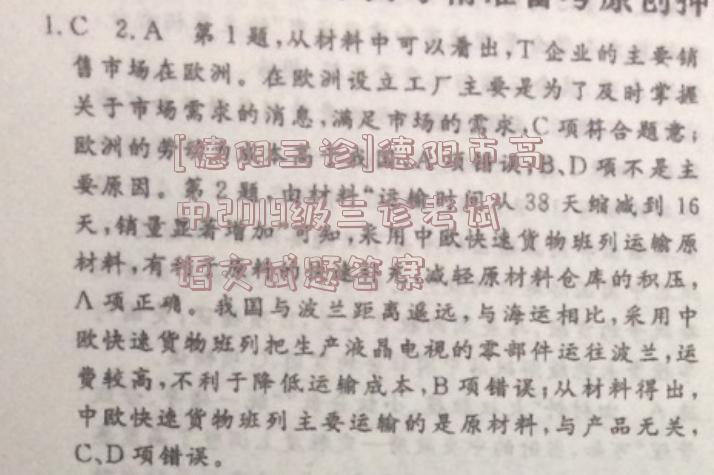 精准备考原创押
1.C 2.A 第1题,从材料中可以看出,T企业的主要销
售市场在欧洲。在欧洲设立工厂主要是为了及时掌握
关于市场需求的消息,满足市场的需求,C项符合题意;
欧洲的劳 本高 我国,A项错误,B、D项不是主
要原因。第2题,由材料“运输时间从38天缩减到16
天,销量显著增加”可知,采用中欧快速货物班列运输原
材料,有利于 料的快速 减轻原材料仓库的积压,
A项正确。我国与波兰距离遥远,与海运相比,采用中
欧快速货物班列把生产液晶电视的零部件运往波兰,运
费较高,不利于降低运输成本,B项错误;从材料得出,
中欧快速货物班列主要运输的是原材料,与产品无关,
C、D项错误。
[德阳三诊]德阳市高
中2019级三诊考试
语文试题答案